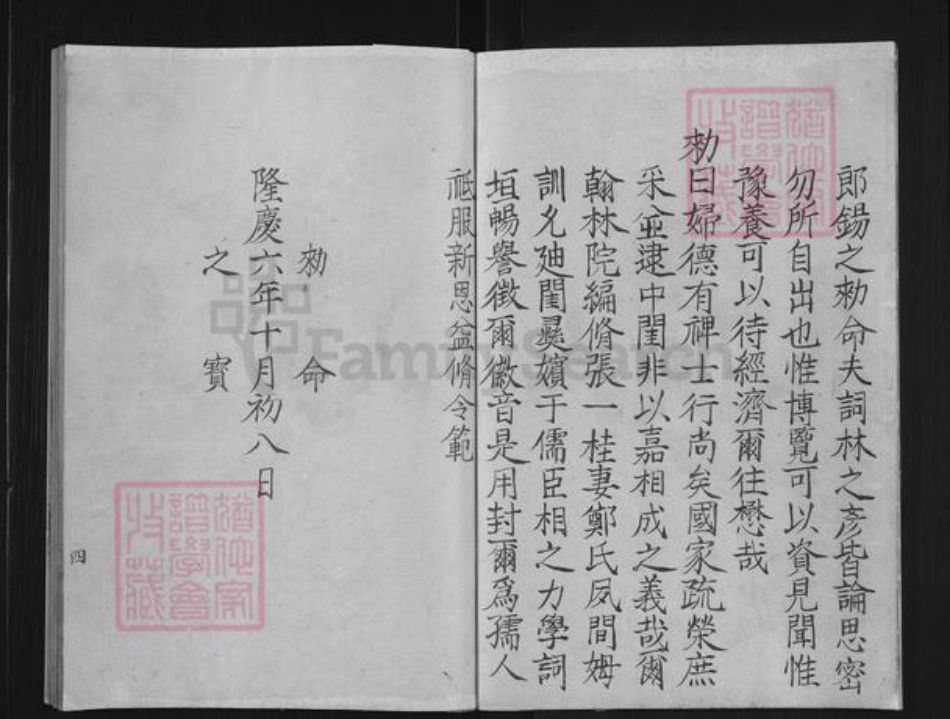 郎錫之勑命夫詞林之彥皆論思密
勿所自出也惟博覽可以資見聞惟
豫養可以待經濟爾往懋哉
勑曰婦德有裨士行尚矣國家疏榮庶
采並逮中閨非以嘉相成之義哉爾
翰林院編脩張一桂妻鄭氏夙閒姆
訓允迪閨彝嬪于儒臣相之力學詞
垣暢譽徵爾徽音是用封爾爲孺人
祗服新恩益脩令範
勑命
隆慶六年十月初八日
之寶
四
FamilySearch